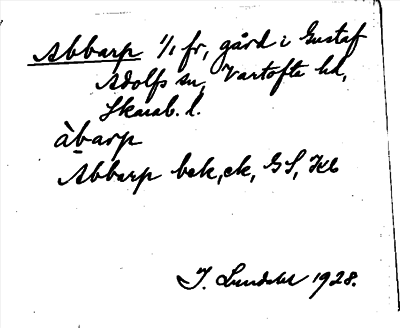 Abbarp 1/1 fr, gård i Gustaf
Adolfs sn, Vartofte hd,
Skarab. l.
àbarp
Abbarp bek, ek, GS, Kb
J. 1928.